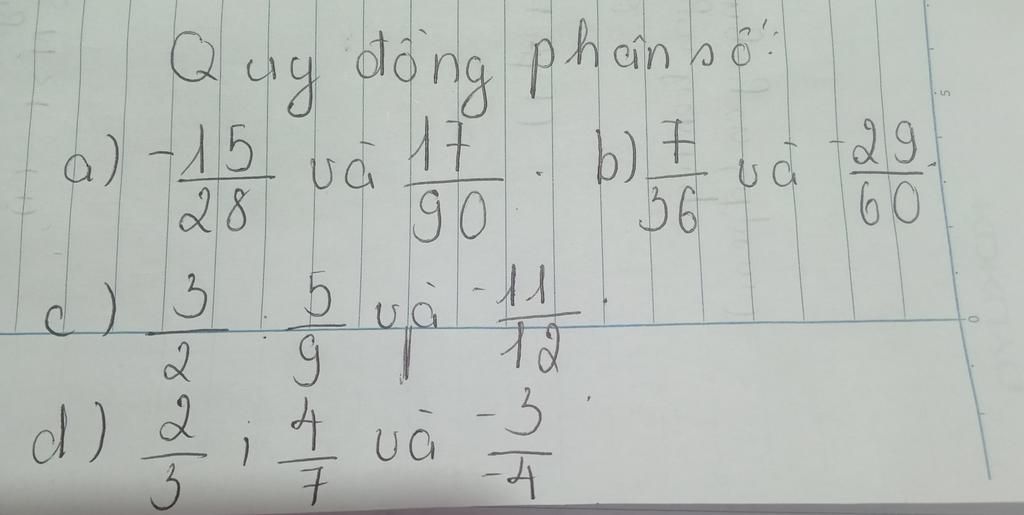 Quy đồng phân số:
a) -15/28 và 17/90. b) 7/36 và -29/60.
c) 3/2; 5/9 và -11/12.
d) 2/3; 4/7 và -3/-4
5
0